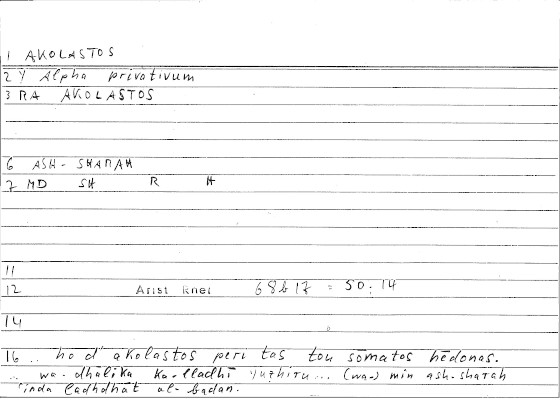 1 AKOLASTOS
2 Y Alpha privativum
3 RA AKOLASTOS
6 ASH-SHARAH
7 MD SH R H
11
12 Arist Rhet 68b17 = 50:14
14
16 .. ho d' akolastos peri tas tou sōmatos hēdonas.
.. wa-dhālika ka-lladhī yuzhiru... (wa-) min ash-sharah
ʿinda ladhdhāt al-badan.